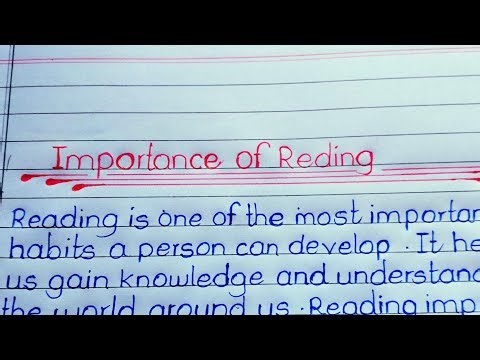 Importance of Reding
Reading is one of the most importan
habits a person can develop . It he
us gain knowledge and understand
the world around us . Reading imp